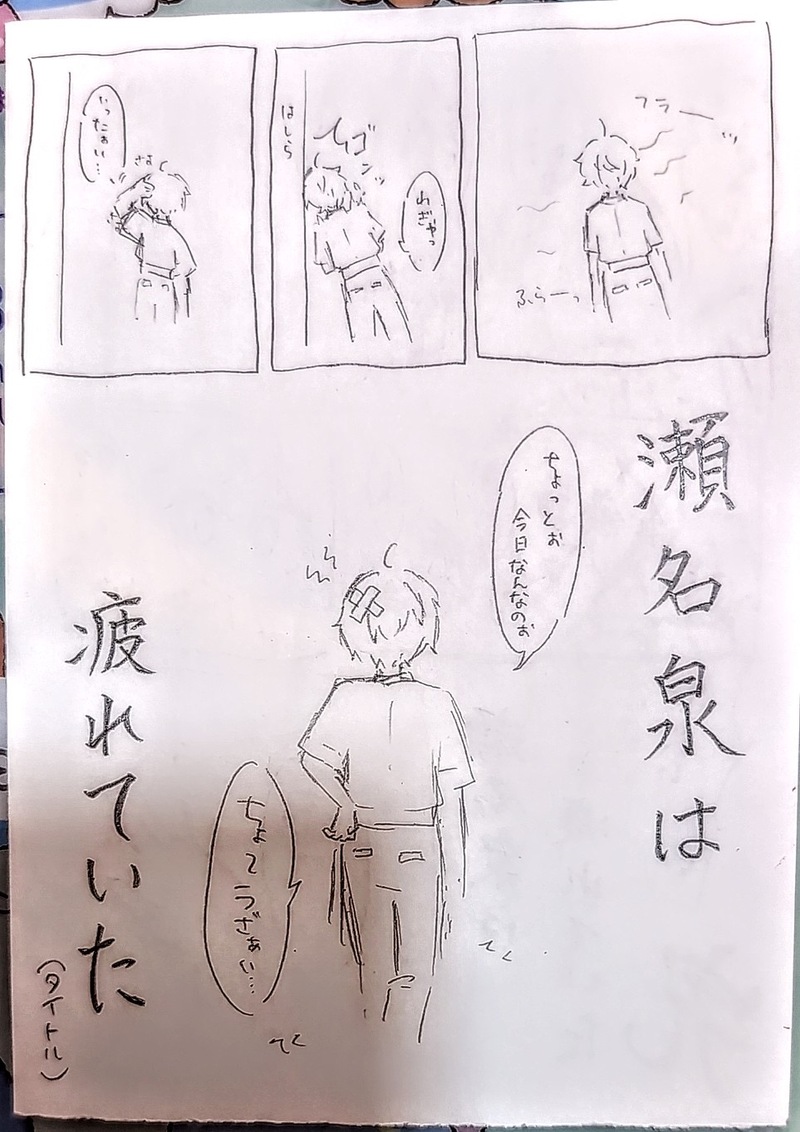 フラー
ふらーっ
ゴンッ
わぎゃっ
はしら
いったぁい…
さす
瀬名泉は
ちょっとぉ
今日なんなのぉ
ちょてうざぁい…
てく
てく
疲れていた
(タイトル)